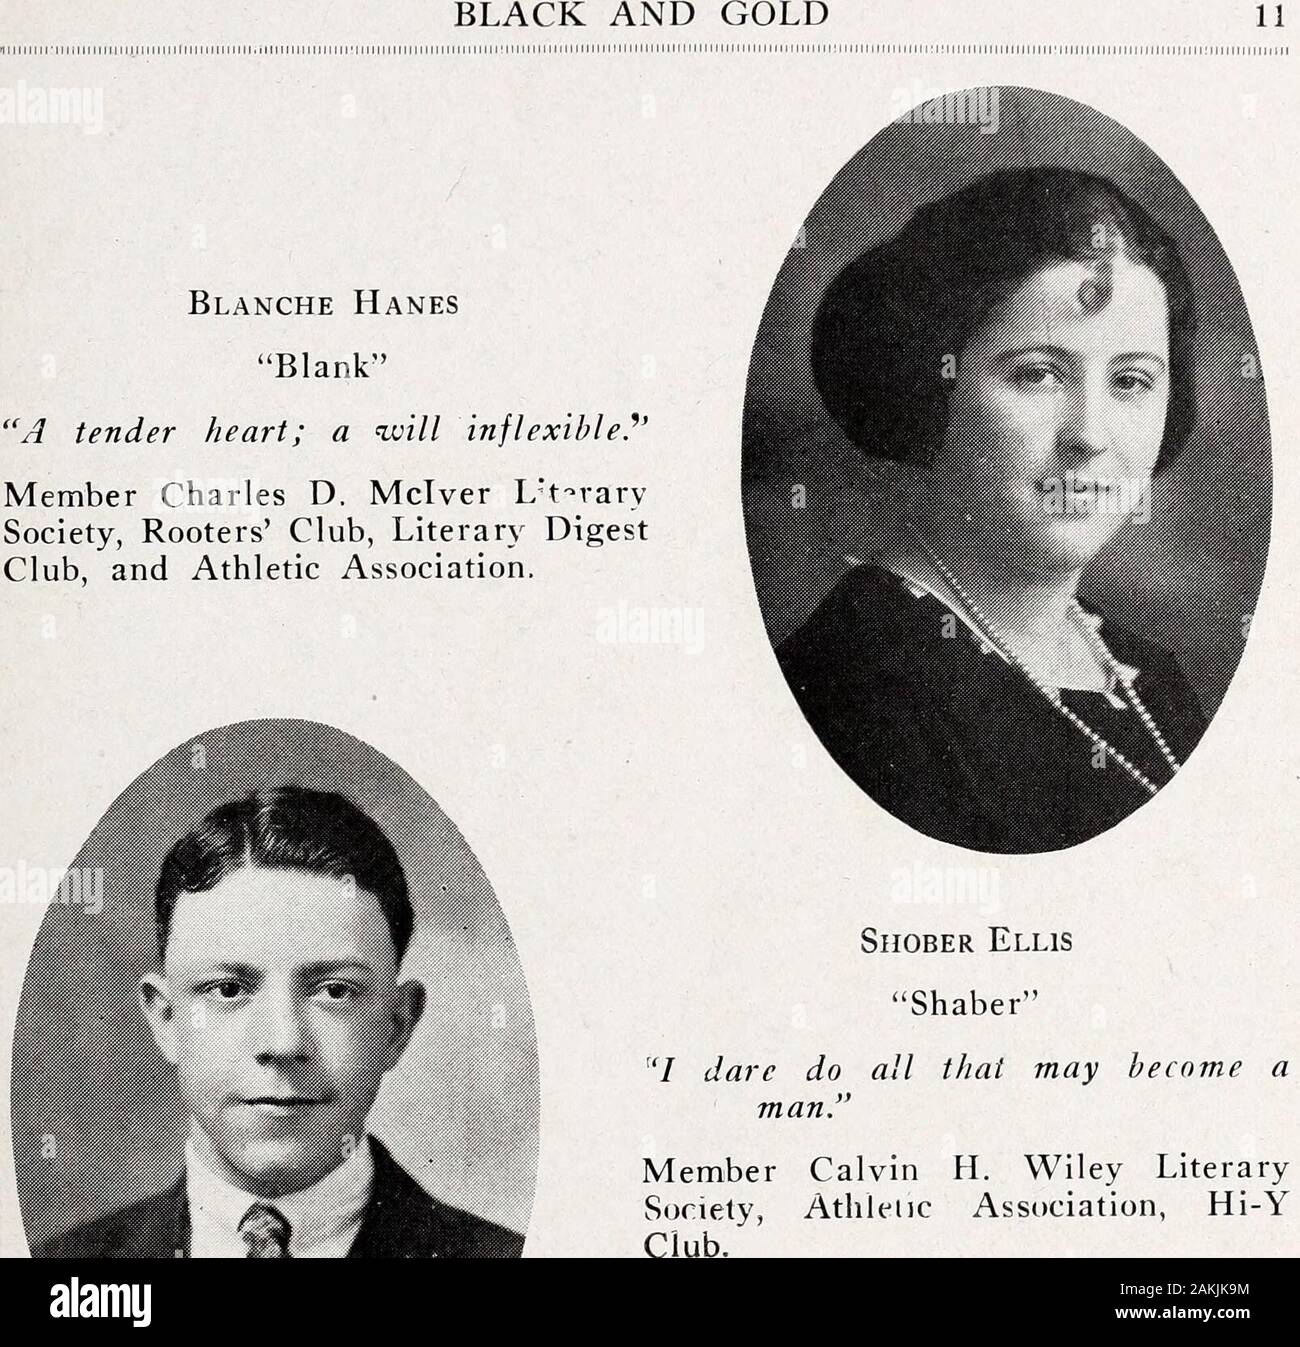 BLACK AND GOLD 11
BLANCHE HANES
"Blank"
"A tender heart; a will inflexible."
Member Charles D. McIver Literary
Society, Rooters' Club, Literary Digest
Club, and Athletic Association.
SHOBER ELLIS
"Shaber"
"I dare do all that may become a
man."
Member Calvin H. Wiley Literary
Society, Athletic Association, Hi-Y
Club.
alamy
Image ID: 2AKJK9M
www.alamy.com